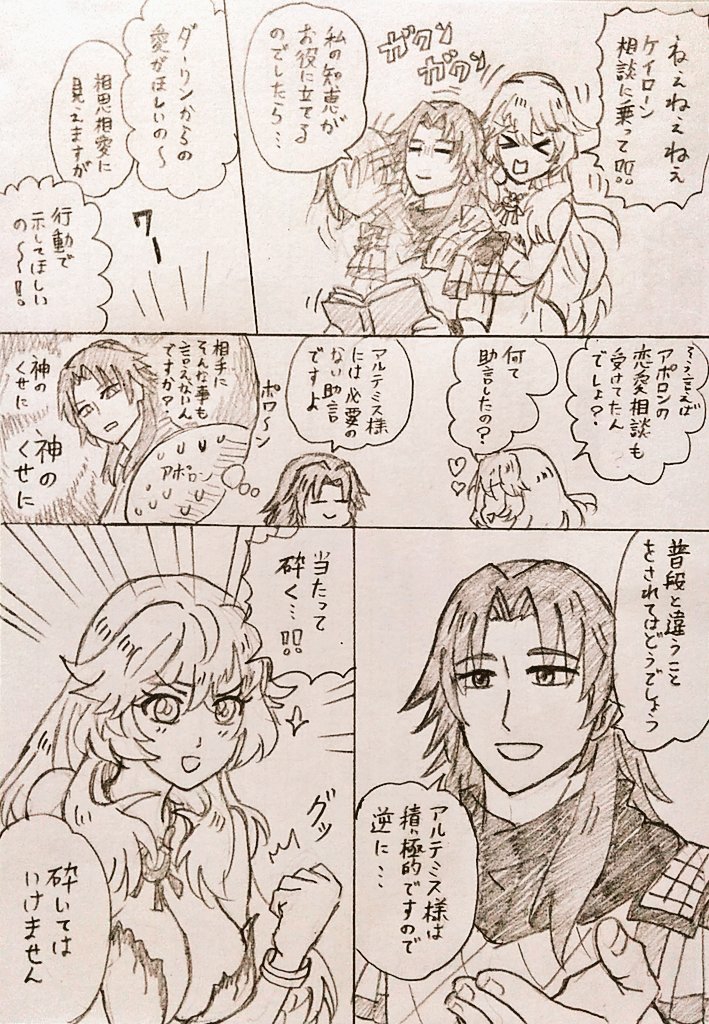 ねぇねぇねぇ
ケイローン
相談に乗って!!
ガクン
ガクン
私の知恵が
お役に立てる
のでしたら…
ダーリンからの
愛がほしいの〜
相思相愛に
見えますが
行動で
示してほしい
の〜!!
ワー
そういえば
アポロンの
恋愛相談も
受けてたん
でしょ?
何て
助言したの?
アルテミス様
には必要の
ない助言
ですよ
ポワ〜ン
相手に
そんな事も
言えないん
ですか?
アポロン
神の
くせに
神の
くせに
普段と違うこと
をされてはどうでしょう
アルテミス様は
積極的ですので
逆に…
当たって
砕く…!!
グッ
砕いては
いけません